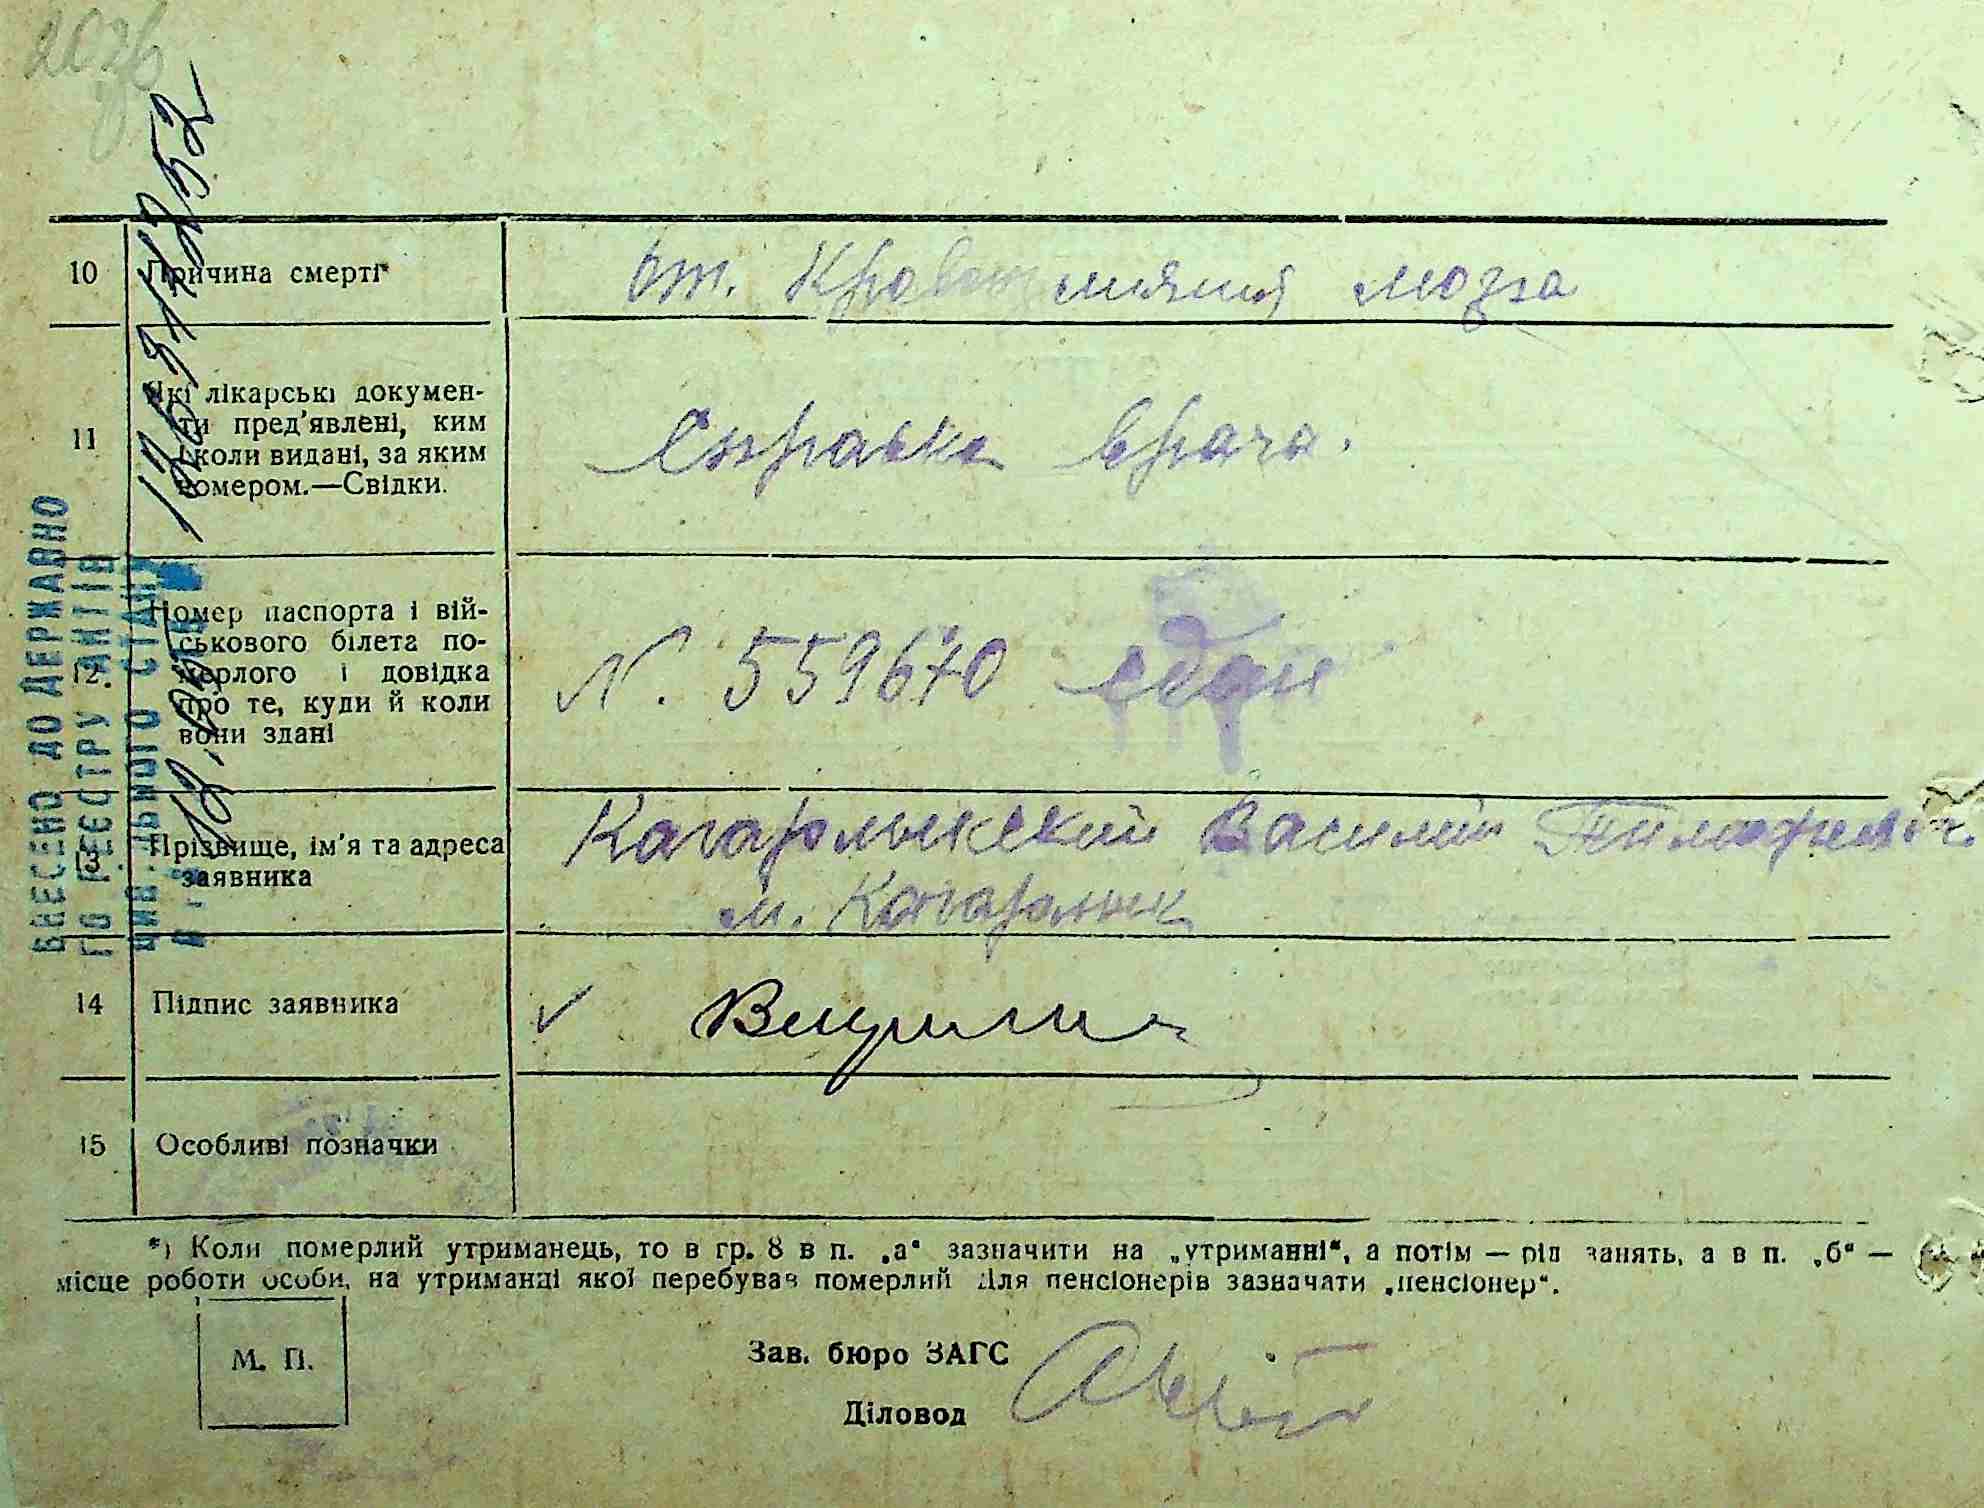 10 Причина смерті от. Кровоизлияния мозга
11 Які лікарські докумен-
ти пред'явлені, ким
і коли видані, за яким
номером.—Свідки.
Справка врача.
12. Номер паспорта і вій-
ськового білета по-
мерлого і довідка
про те, куди й коли
вони здані
N. 559670 сдан
13 Прізвище, ім'я та адреса
заявника
Кагарлыкский Василий
м. Кагарлык
14 Підпис заявника
15 Особливі позначки
*) Коли померлий утриманець, то в гр. 8 в п. „а“ зазначити на „утриманні“, а потім — рід занять, а в п. „б“ —
місце роботи особи, на утриманні якої перебував померлий Для пенсіонерів зазначати „пенсіонер“.
М. П.
Зав. бюро ЗАГС
Діловод
ВНЕСЕНО ДО ДЕРЖАВНО
ГО РЕЄСТРУ АКТІВ
ЦИВІЛЬНОГО СТАНУ